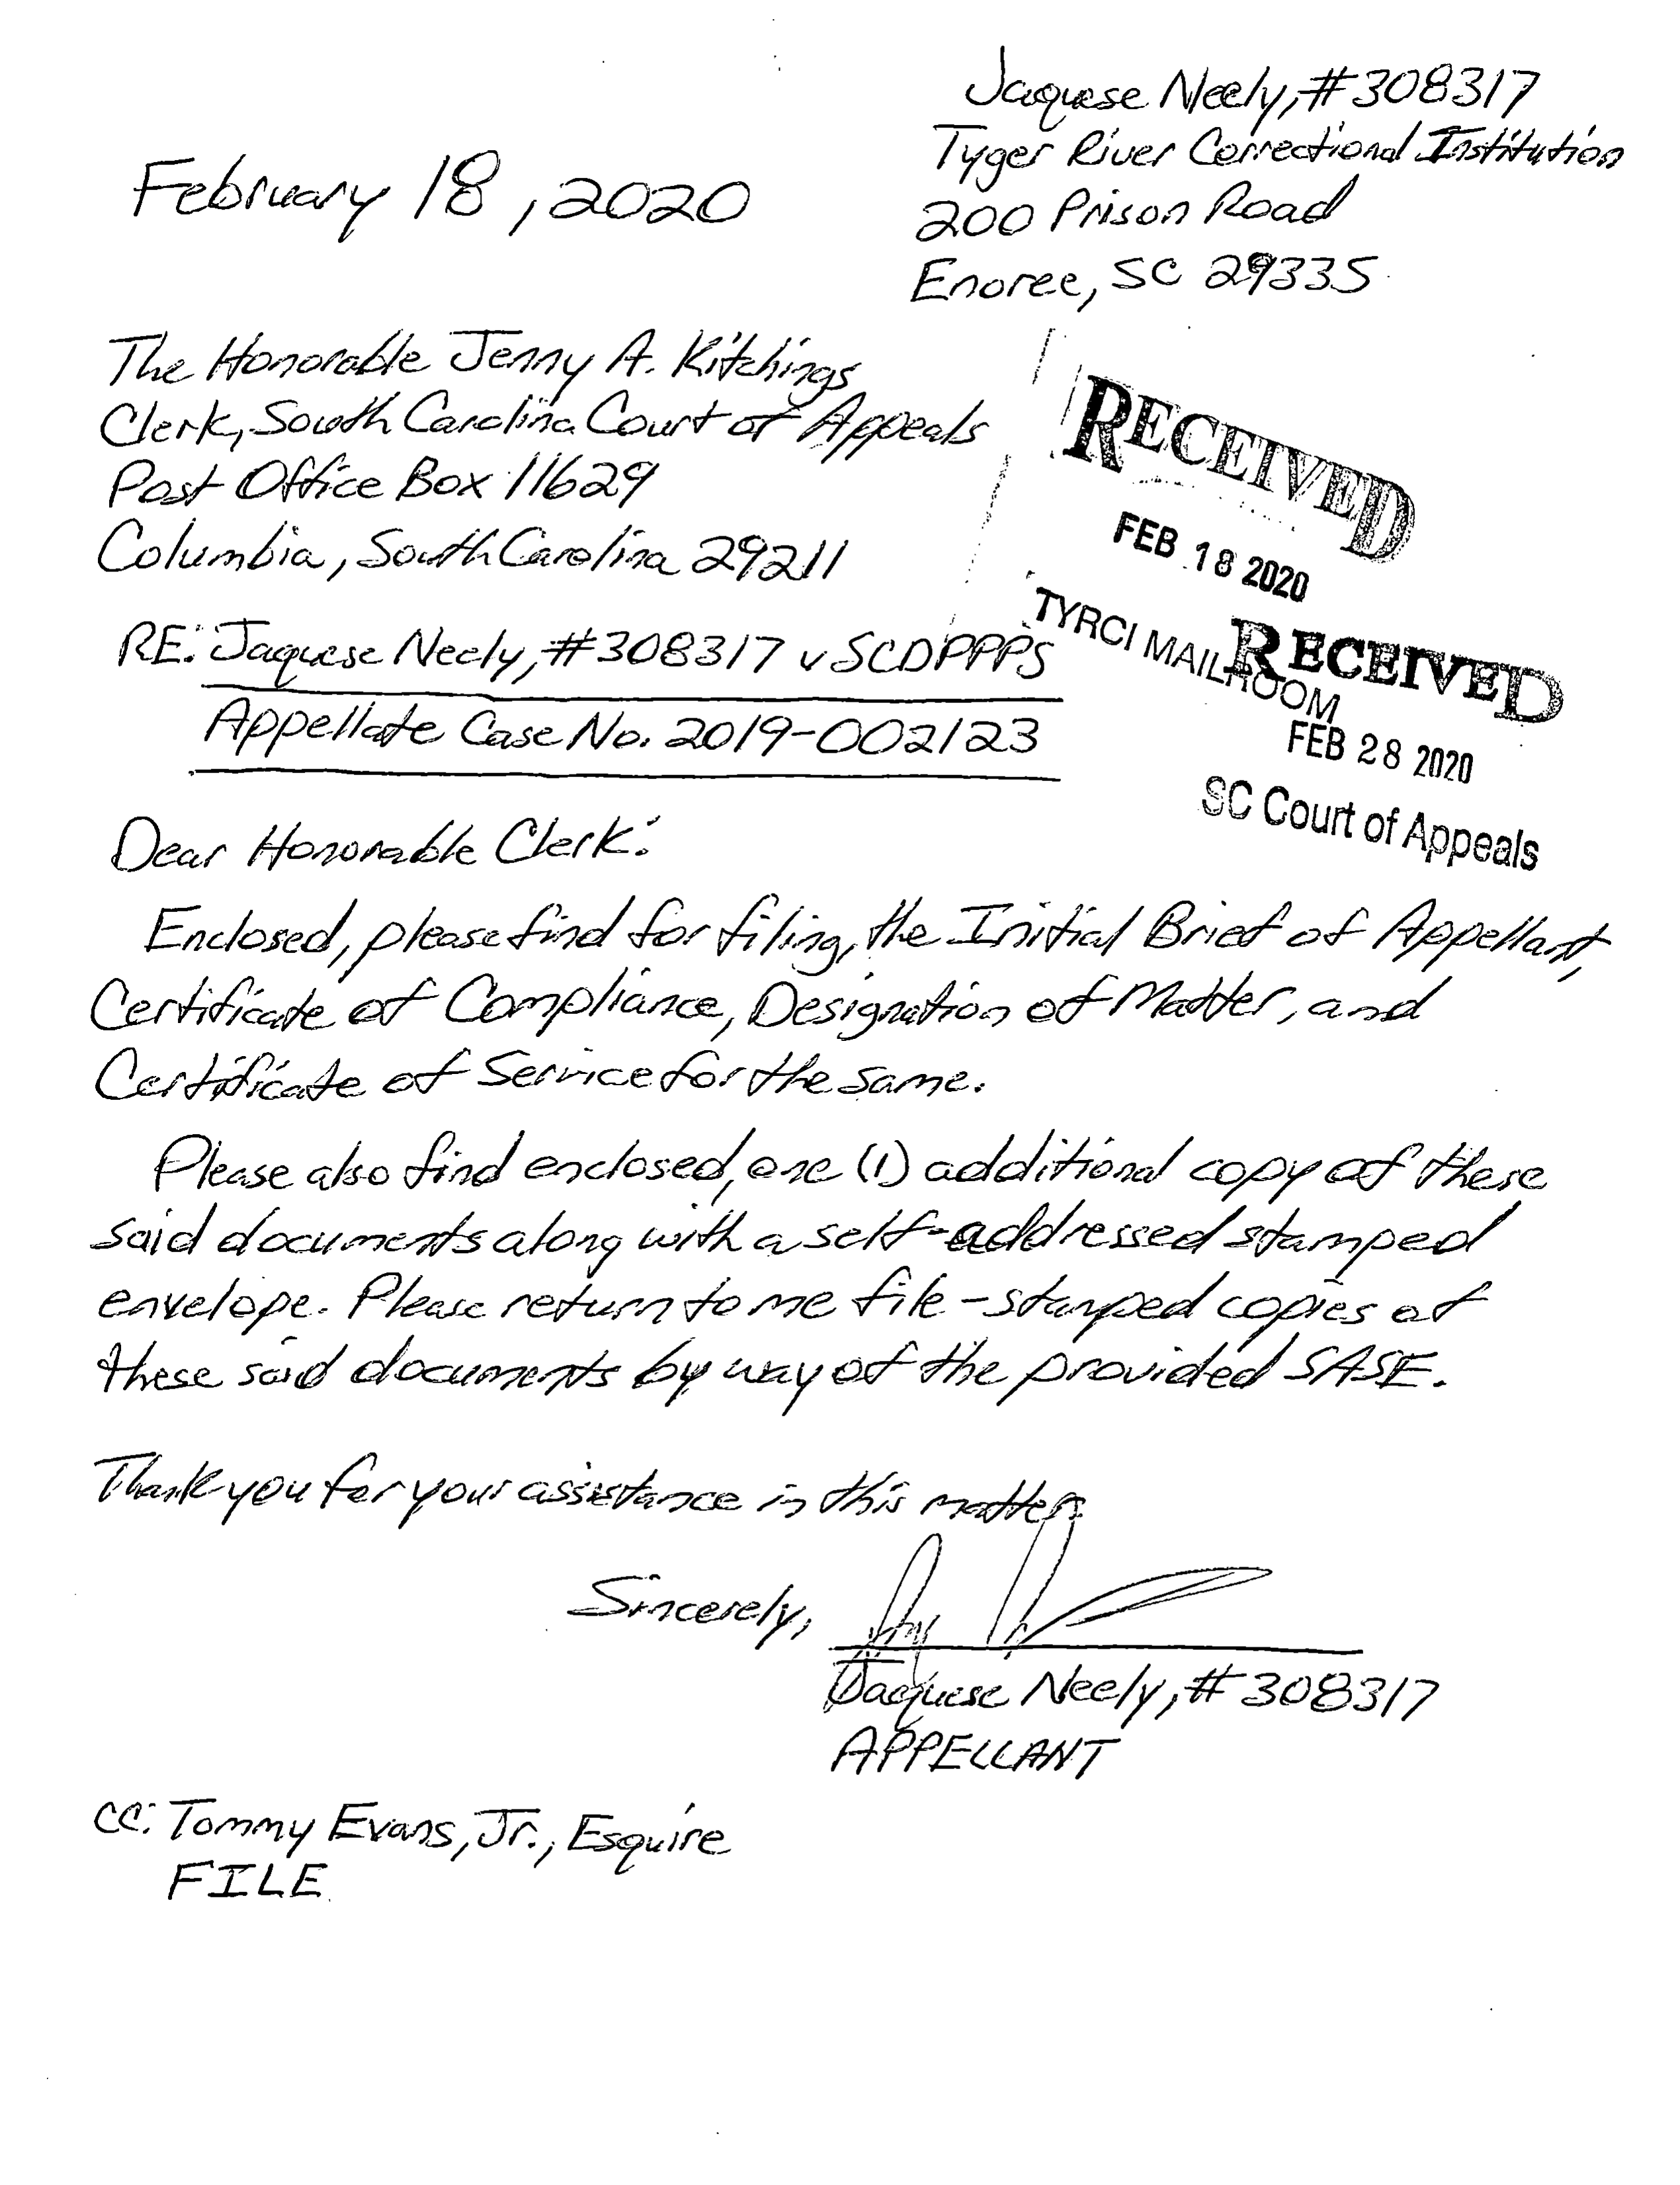 Jaquese Neely, #308317
Tyger River Correctional Institution
200 Prison Road
Enoree, SC 29335
February 18, 2020
The Honorable Jenny A. Kitchings
Clerk, South Carolina Court of Appeals
Post Office Box 11629
Columbia, South Carolina 29211
RECEIVED
FEB 18 2020
TYRCI MAILROOM
RECEIVED
FEB 28 2020
SC Court of Appeals
RE: Jaquese Neely, #308317 v SCDPPPS
Appellate Case No. 2019-002123
Dear Honorable Clerk:
Enclosed, please find for filing, the Initial Brief of Appellant,
Certificate of Compliance, Designation of Matter, and
Certificate of Service for the same.
Please also find enclosed, one (1) additional copy of these
said documents along with a self-addressed stamped
envelope. Please return to me file-stamped copies of
these said documents by way of the provided SASE.
Thank you for your assistance in this matter.
Sincerely,
Jaquese Neely, #308317
APPELLANT
CC: Tommy Evans, Jr., Esquire
FILE